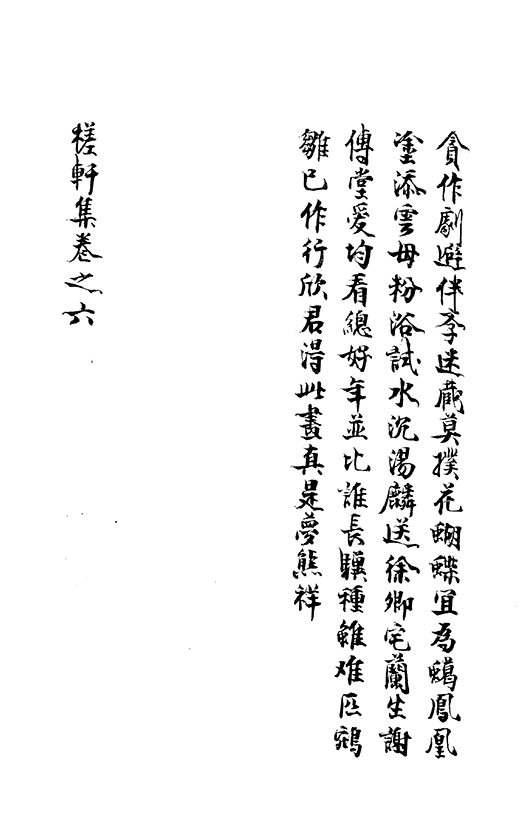 貪作劇避伴斈迷藏莫撲花蝴蝶宜為鳳凰
塗添雲母粉浴試水沉湯麟送徐卿宅蘭生謝
傅堂愛均看總好年並比誰長驥種雖难匹鵷
雛已作行欣君得此畫真是夢熊祥
槎軒集卷之六